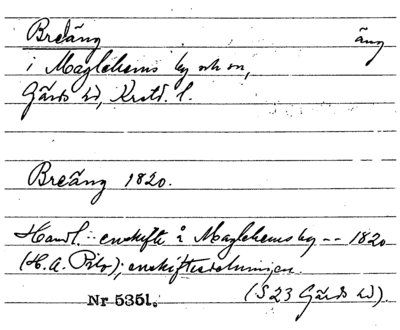 Breäng äng
i Maglehems by och sn,
Gärds hd, Krstd. l.
Breäng 1820.
Handl. :- enskifte å Maglehems by -- 1820
(H. A. Pilo); enskiftesdelningen.
Nr 5351. (S 23 Gärds hd).